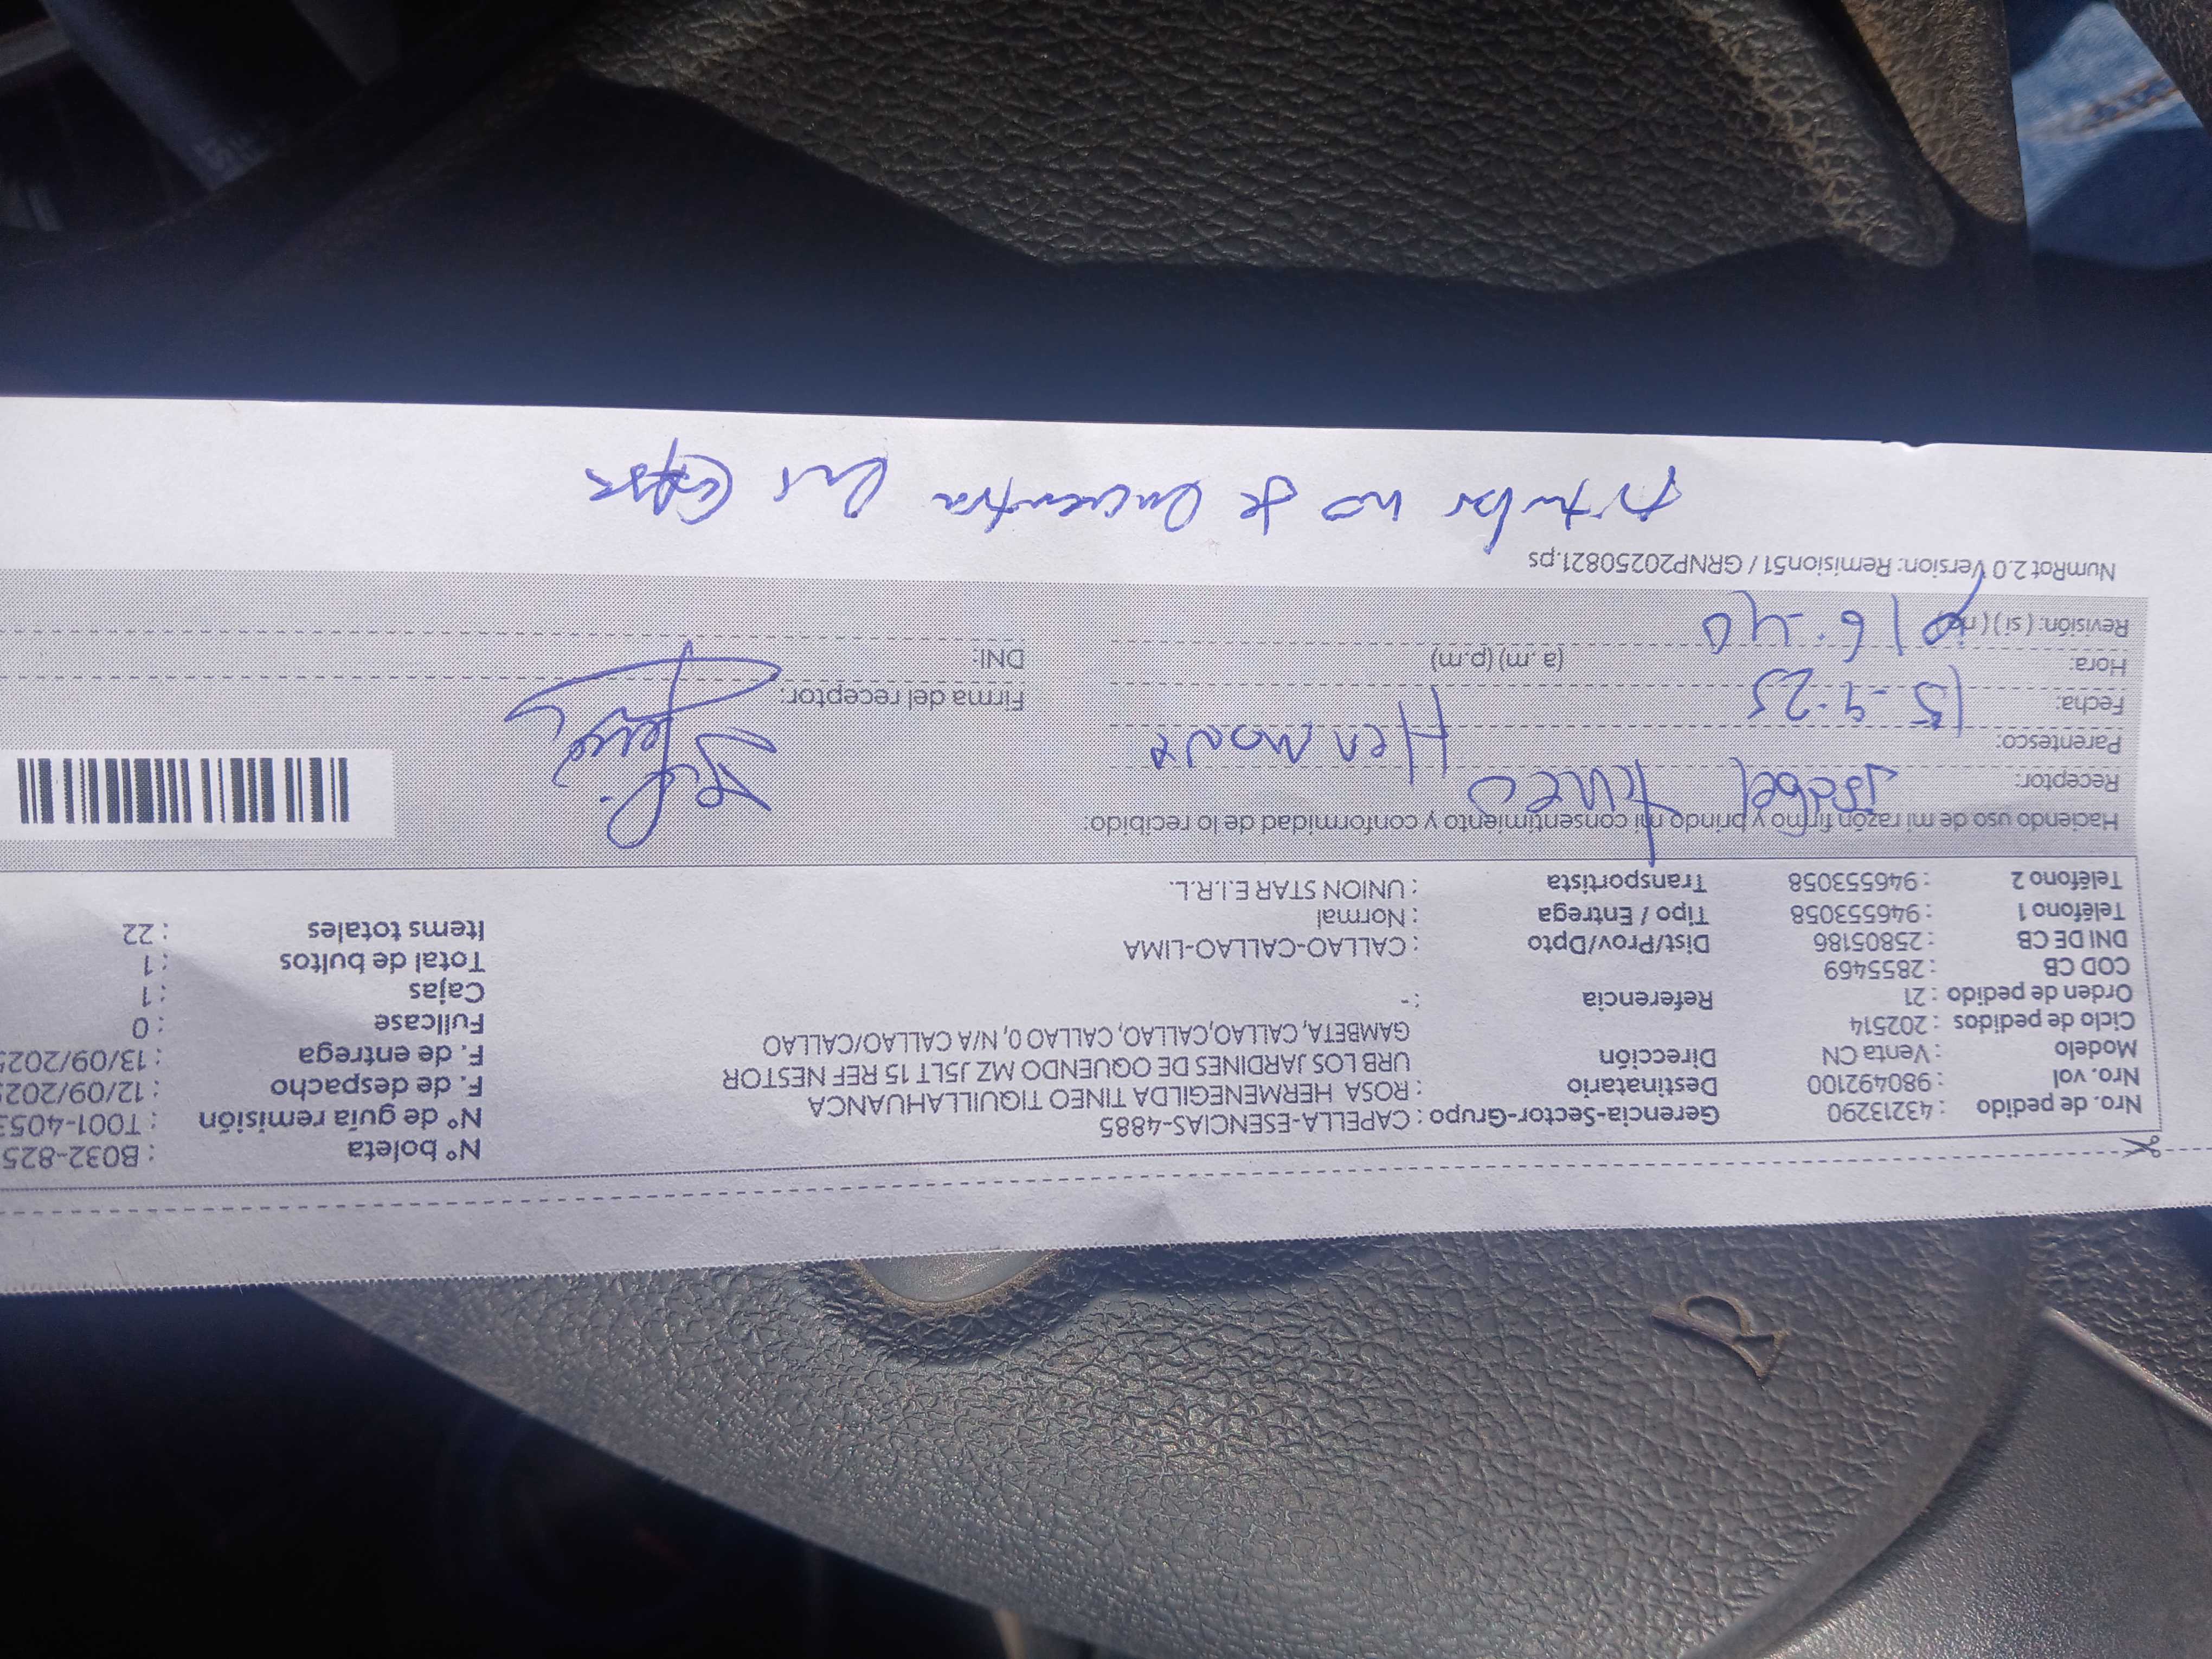 Nº boleta : B032-825
Nro. de pedido : 43213290 Gerencia-Sector-Grupo : CAPELLA-ESENCIAS-4885 Nº de guía remisión : T001-4053
Nro. vol : 980492100 Destinatario : ROSA HERMENEGILDA TINEO TIQUILLAHUANCA F. de despacho : 12/09/202
Modelo : Venta CN Dirección URB LOS JARDINES DE OQUENDO MZ J5LT 15 REF NESTOR F. de entrega : 13/09/2025
Ciclo de pedidos : 202514 GAMBETA, CALLAO,CALLAO, CALLAO 0, N/A CALLAO/CALLAO Fullcase : 0
Orden de pedido : 21 Referencia : - Cajas : 1
COD CB : 2855469 Total de bultos : 1
DNI DE CB : 25805186 Dist/Prov/Dpto : CALLAO-CALLAO-LIMA Items totales : 22
Teléfono 1 : 946553058 Tipo / Entrega : Normal
Teléfono 2 : 946553058 Transportista : UNION STAR E.I.R.L.
Haciendo uso de mi razón firmo y brindo mi consentimiento y conformidad de lo recibido:
Receptor: Isabel Tineo
Parentesco: Hermana
Fecha: 15-9-25 Firma del receptor:
Hora: 16:40 (a. m) (p.m) DNI:
Revisión: ( si ) ( no )
NumRot 2.0 Version: Remision51 / GRNP20250821.ps
titular no se encuentra en